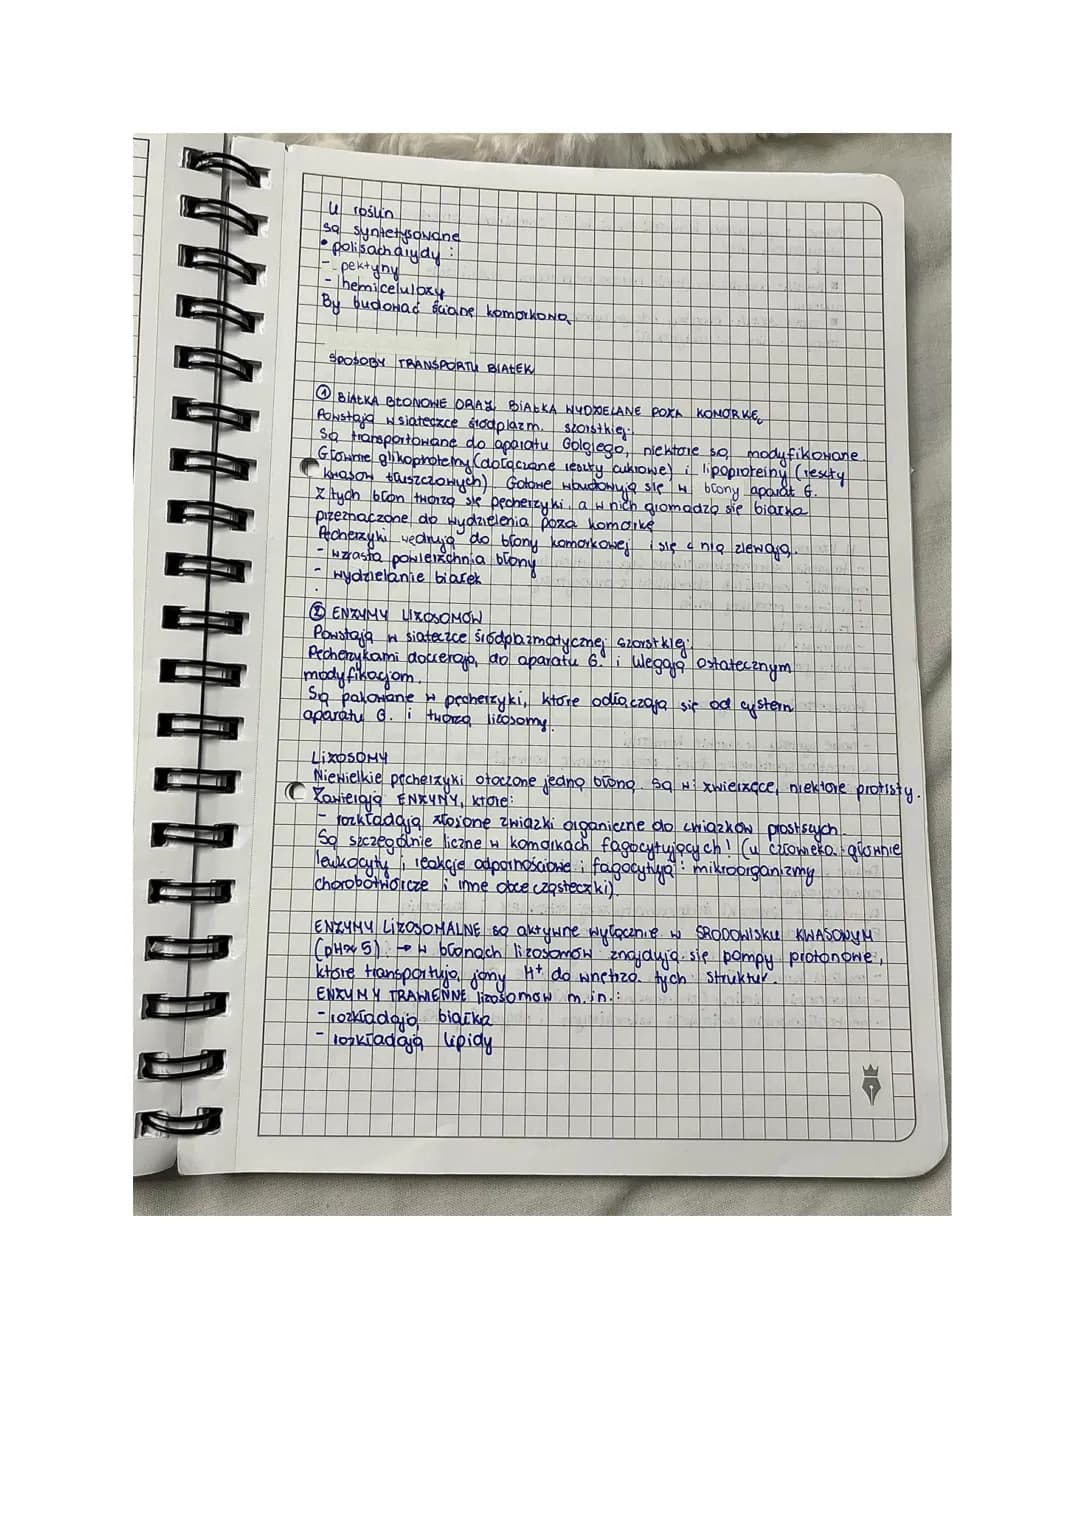 U roślin
są syntetysowane
• polisacharydy :
- pektyny
- hemicelulozy
By budować ścianę komórkową
SPOSOBY TRANSPORTU BIAŁEK
① BIAŁKA BŁONOWE ORAZ BIAŁKA WYDZIELANE POZA KOMÓRKĘ
Powstają w siateczce śródplazm. szorstkiej.
Są transportowane do aparatu Golgiego, niektóre są modyfikowane.
Głównie glikoproteiny (dołączane reszty cukrowe) i lipoproteiny (reszty
kwasów tłuszczowych). Gotowe wbudowują się w błony aparat G.
Z tych błon tworzą się pęcherzyki, a w nich gromadzą się białka
przeznaczone do wydzielenia poza komórkę
Pęcherzyki wędrują do błony komórkowej i się z nią zlewają.
- wzrasta powierzchnia błony
- wydzielanie białek
② ENZYMY LIZOSOMÓW
Powstają w siateczce śródplazmatycznej szorstkiej.
Pęcherzykami docierają do aparatu G. i ulegają ostatecznym
modyfikacjom.
Są pakowane w pęcherzyki, które odłączają się od cystern
aparatu G. i tworzą lizosomy.
LIZOSOMY
Niewielkie pęcherzyki otoczone jedną błoną. Są w: zwierzęce, niektóre protisty.
Zawierają ENZYMY, które:
- rozkładają złożone związki organiczne do związków prostszych.
Są szczególnie liczne w komórkach fagocytujących! (u człowieka głównie
leukocyty ; reakcje odpornościowe ; fagocytują : mikroorganizmy
chorobotwórcze i inne obce cząsteczki).
ENZYMY LIZOSOMALNE są aktywne wyłącznie w ŚRODOWISKU KWASOWYM
(pH≈5). → w błonach lizosomów znajdują się pompy protonowe,
które transportują jony H⁺ do wnętrza tych struktur.
ENZYMY TRAWIENNE lizosomów m.in.:
- rozkładają białka
- rozkładają lipidy